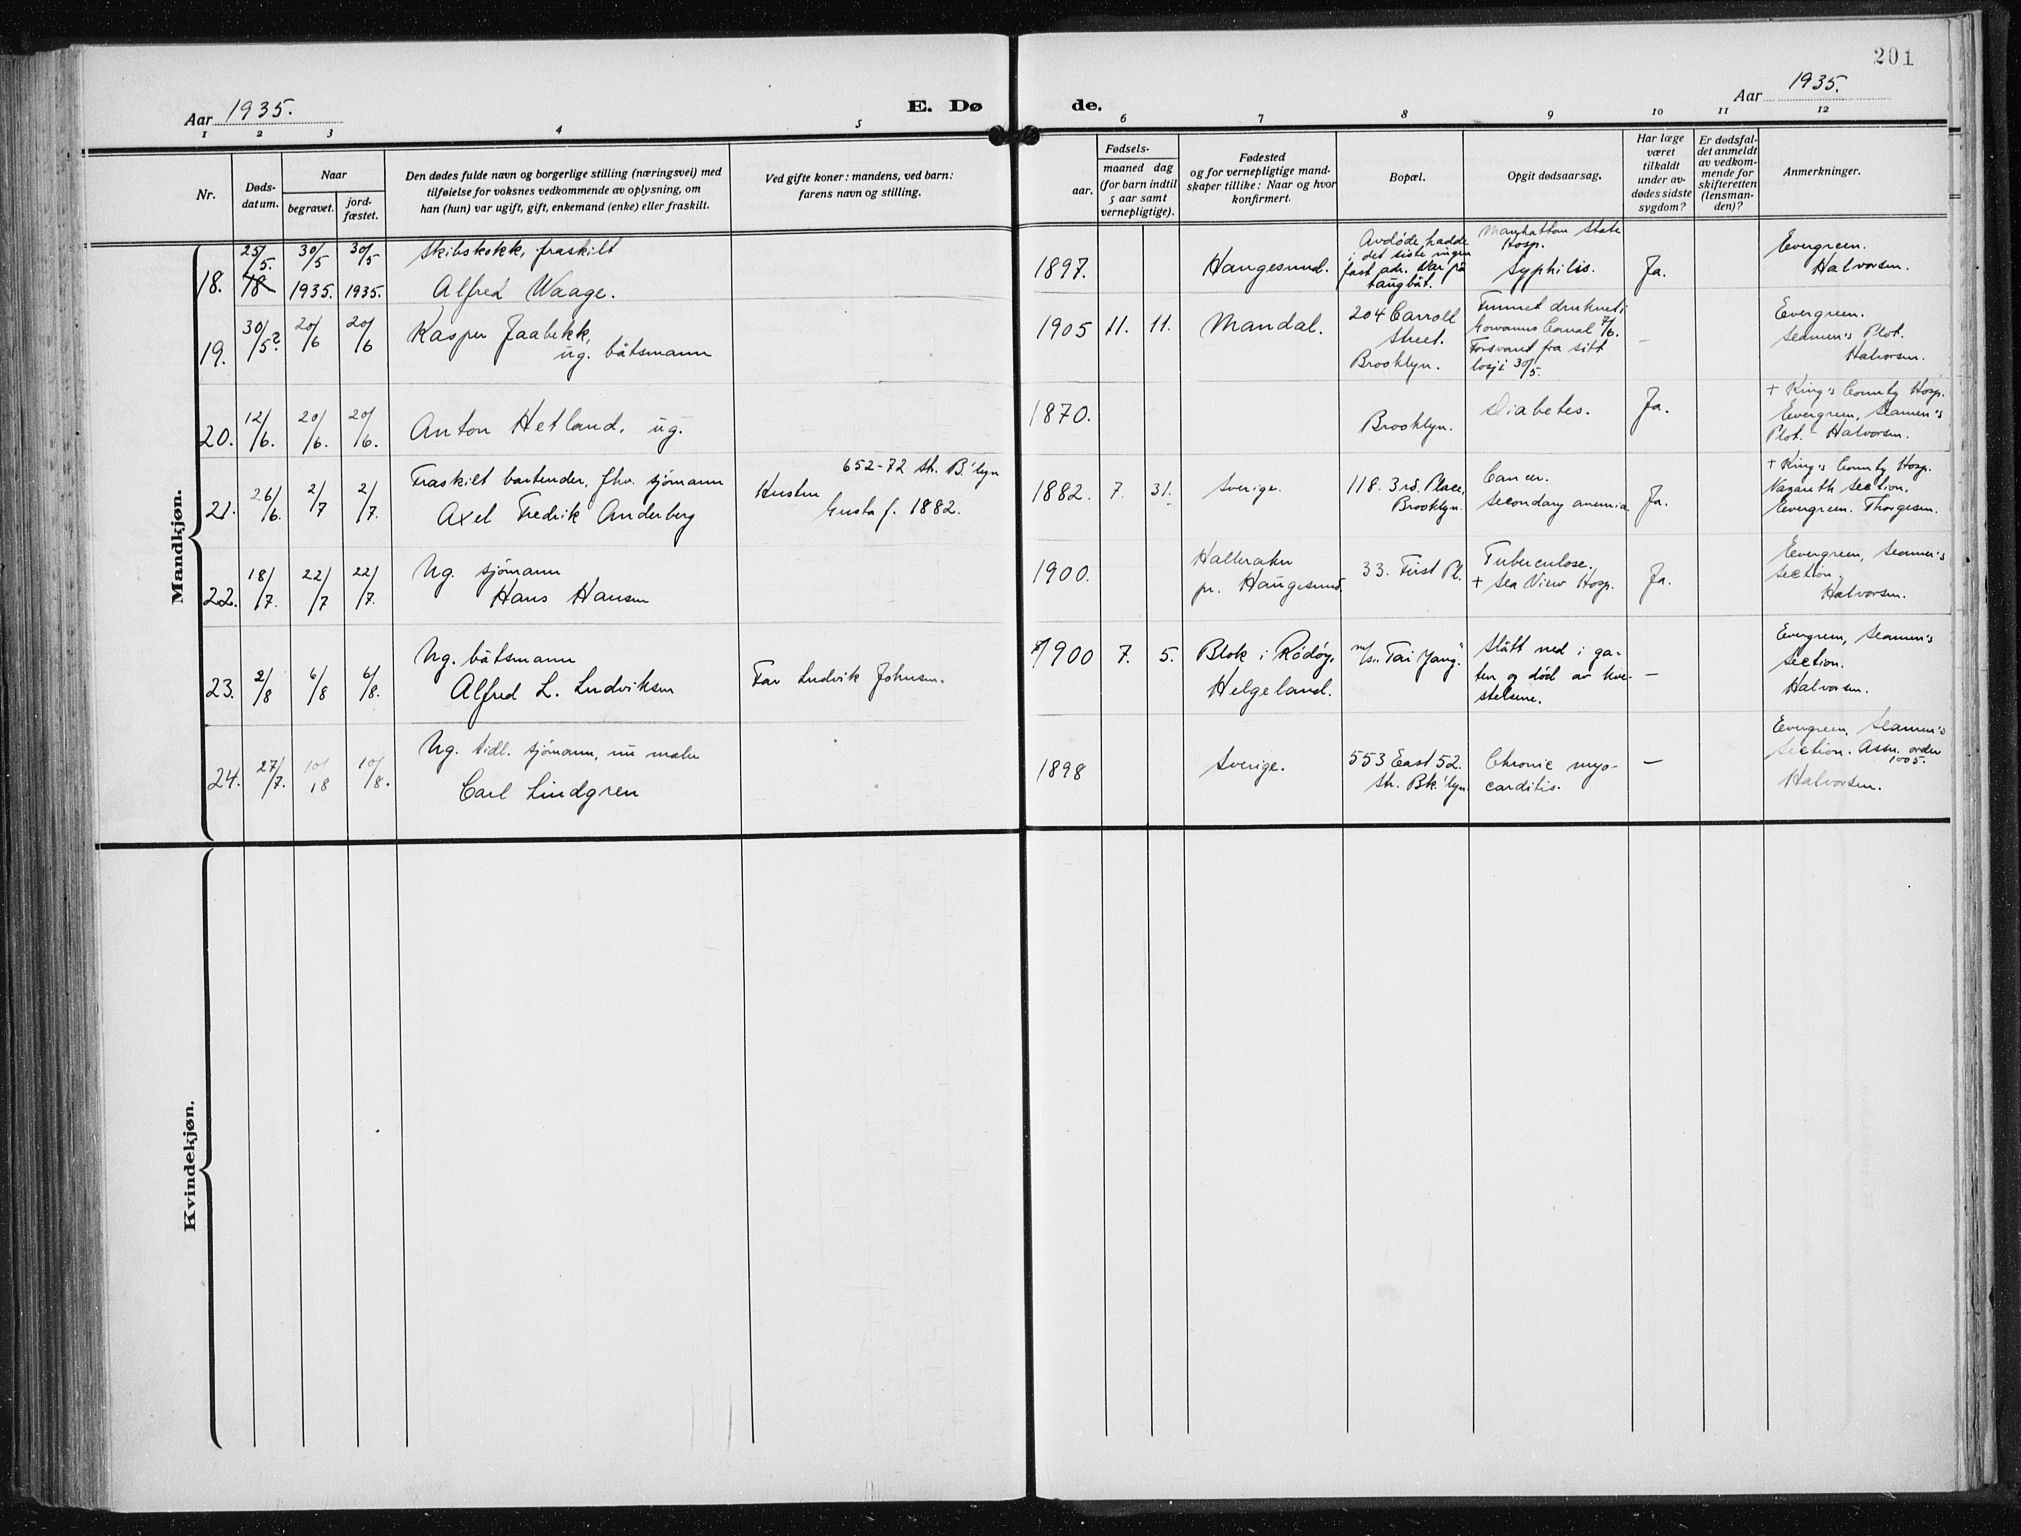 201
Aar 1935.
E. Dø
de.
Aar 1935.
1 2 3 4 5 6 7 8 9 10 11 12
Nr.
Døds-
datum.
Naar
begravet.
jord-
fæstet.
Den dødes fulde navn og borgerlige stilling (næringsvei) med
tilføielse for voksnes vedkommende av oplysning, om
han (hun) var ugift, gift, enkemand (enke) eller fraskilt.
Ved gifte koner: mandens, ved barn:
farens navn og stilling.
Fødsels-
aar.
maaned dag
(for barn indtil
5 aar samt
vernepligtige).
Fødested
og for vernepligtige mand-
skaper tillike: Naar og hvor
konfirmert.
Bopæl.
Opgit dødsaarsag.
Har læge
været
tilkaldt
under av-
dødes sidste
sygdom?
Er dødsfal-
det anmeldt
av vedkom-
mende for
skifteretten
(lensman-
den)?
Anmerkninger.
Mandkjøn.
18.
25/5.
18
30/5
1935.
30/5
1935.
Skibskokk, fraskilt
Alfred Waage.
1897.
Haugesund.
Avdøde hadde
i det siste ingen
fast adr. Var på
taugbåt.
Manhattan State
Hosp.
Syphilis.
Ja.
Evergreen.
Halvorsen.
19.
30/5?
20/6
20/6
Kasper Jaabekk,
ug. båtsmann
1905 11. 11.
Mandal.
204 Carroll
Street.
Brooklyn.
Funnet druknet i
Gowanus Canal 7/6.
Forsvant fra sitt
losji 30/5.
–
Evergreen.
Seamen's Plot.
Halvorsen.
20.
12/6.
20/6.
20/6.
Anton Hetland, ug.
1870.
Brooklyn.
Diabetes.
Ja.
+ King's County Hosp.
Evergreen, Seamen's
Plot. – Halvorsen.
21.
26/6.
2/7
2/7.
Fraskilt bartender, fhv. sjømann
Axel Fredrik Anderberg
652-72 St. B'lyn
Hustru
Gusta f. 1882.
1882. 7. 31.
Sverige.
118. 3rd. Place,
Brooklyn.
Cancer.
Secondary anemia.
Ja.
+ King's County Hosp.
Nazareth Section,
Evergreen. Thorgesen.
22.
18/7.
22/7
22/7.
Ug. sjømann
Hans Hansen
1900.
pr. Haugesund.
33. First Pl.
Tuberculose.
+ Sea View Hosp.
Ja.
Evergreen, Seamen's
Section,
Halvorsen.
23.
2/8
6/8
6/8.
Ug. båtsmann
Alfred L. Ludviksen
Far Ludvik Johnsen.
1900 7. 5.
Blok i Rödöy,
Helgeland.
m/s „Tai Yang"
Slått ned i ga-
ten og død av kve-
stelsene.
–
Evergreen, Seamen's
Section.
Halvorsen.
24.
27/7.
10/8
10/8.
Ug. tidl. sjømann, nu maler
Carl Lindgren
1898
Sverige.
553 East 52.
Str. Bk'lyn
Chronic myo-
carditis.
–
Evergreen, Seamen's
Section. Assn. order
1005.
Halvorsen.
Kvindekjøn.